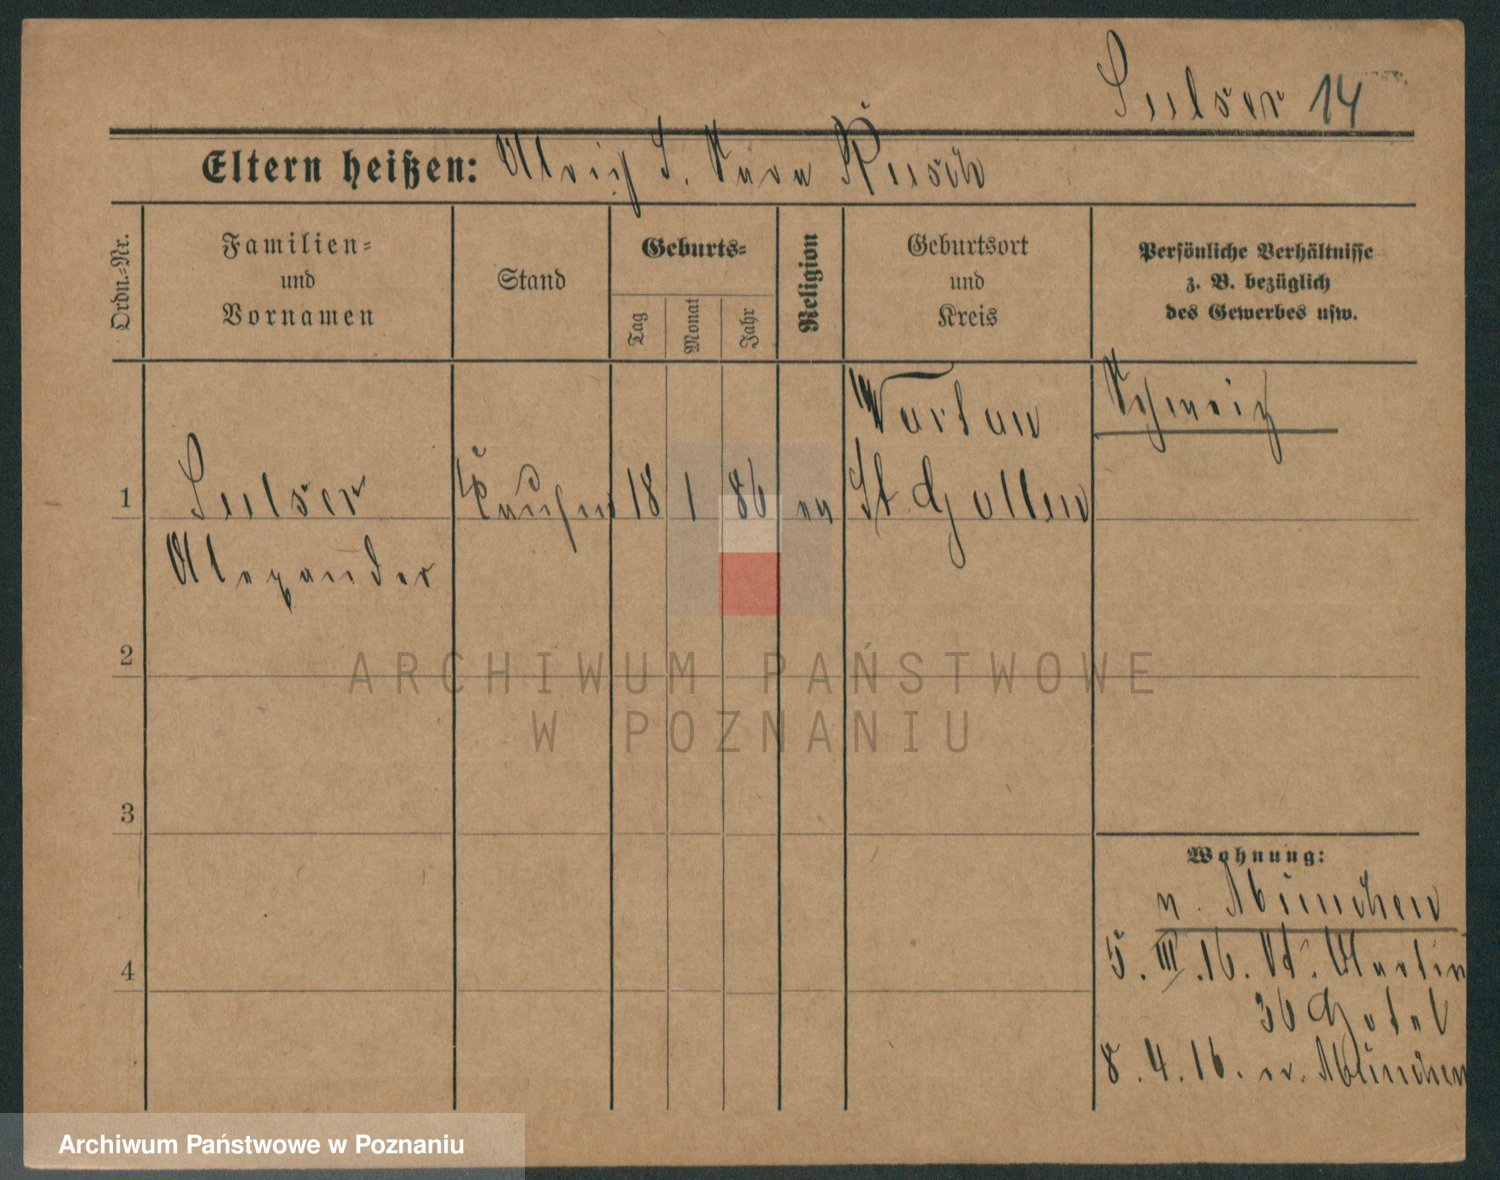 Sulser 14
Eltern heißen: Ulrich S. Sara Rusch
Ordn.-Nr.
Familien-
und
Vornamen
Stand
Geburts-
Tag
Monat
Jahr
Religion
Geburtsort
und
Kreis
Persönliche Verhältnisse
z. B. bezüglich
des Gewerbes usw.
Wartau
Schweiz
1 Sulser 18 1 86 St. Gallen
Alexander
2
ARCHIWUM PAŃSTWOWE
W POZNANIU
3
4
Wohnung:
München
5. III. 16. St. Martin
36 Hotel
8. 4. 16. n. München
Archiwum Państwowe w Poznaniu